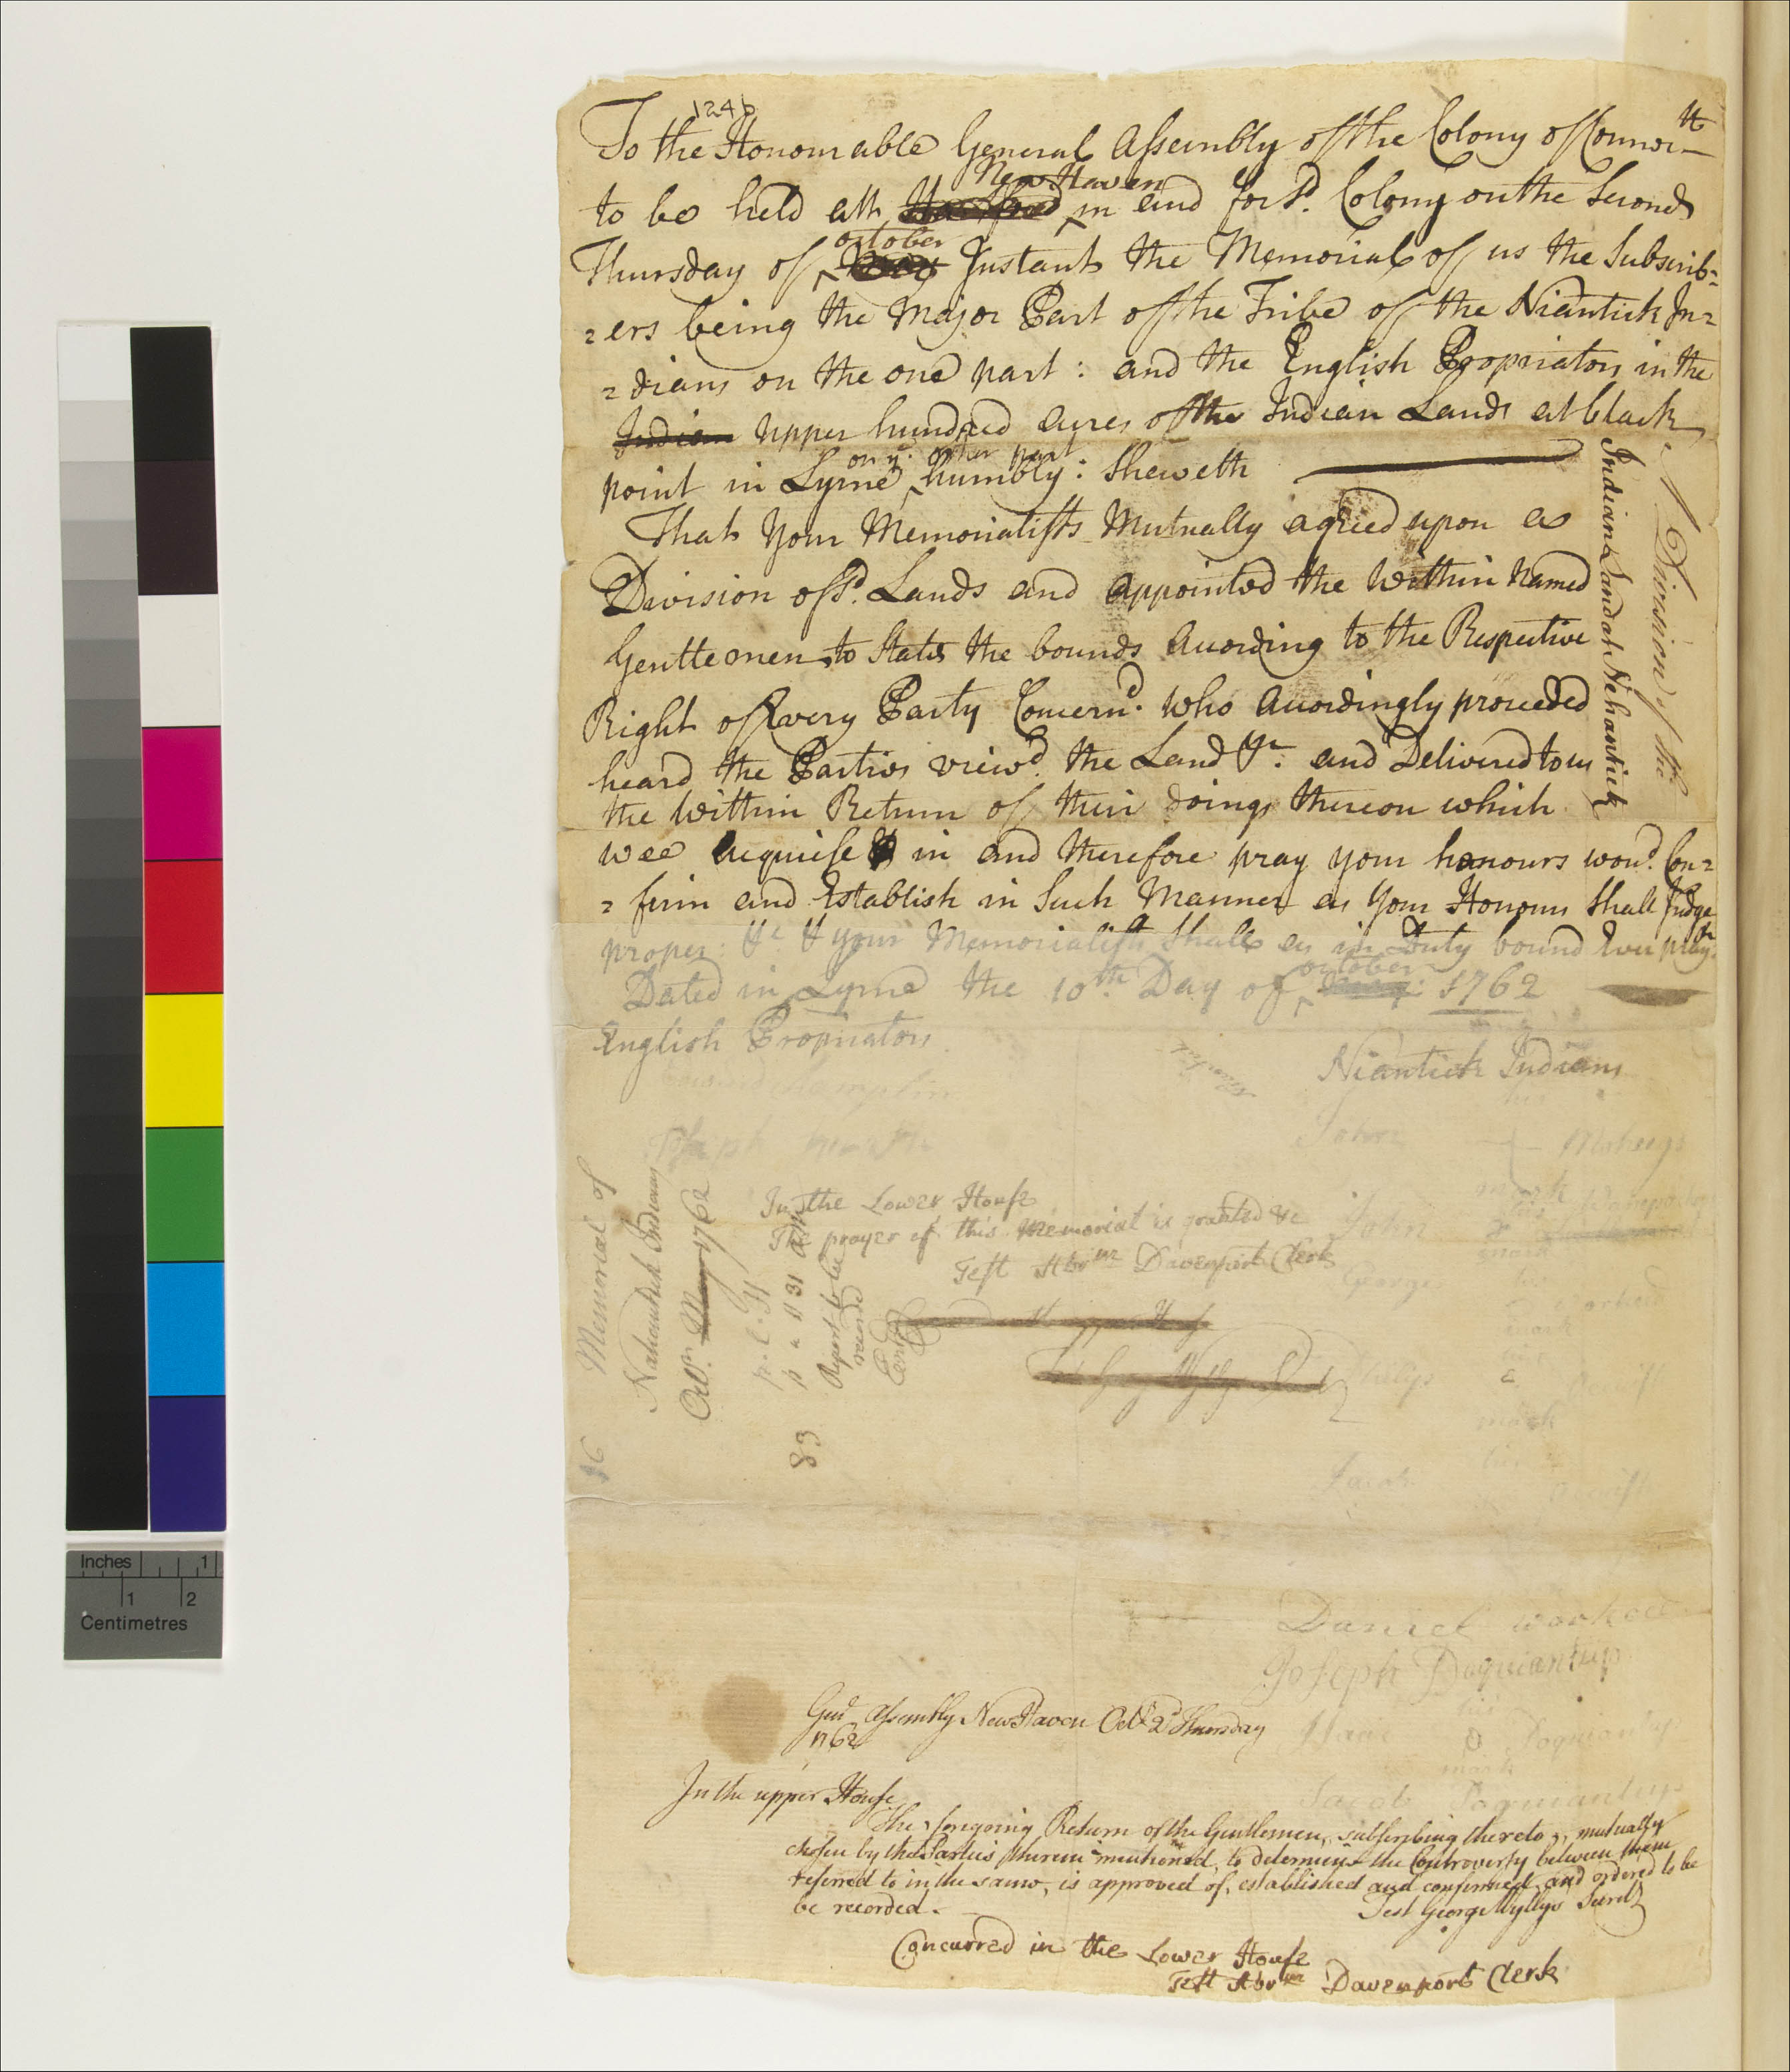 124b
To the Honourable General Assembly of the Colony of Connectt
to be held att Hartford New Haven in and for sd. Colony on the Second
Thursday of May october Instant the Memorial of us the Subscrib-
=ers being the Major Part of the Tribe of the Niantick In=
=dians on the one part: and the English Propriators in the
Indian upper hundred acres of the Indian Lands at black
point in Lyme on ye. other part humbly: Sheweth
That Your Memorialists Mutually agreed upon a
Division of sd. Lands and appointed the Within Named
Gentlemen to State the bounds According to the Respective
Right of Every Party Concernd. who Accordingly proceeded
heard the Parties viewd. the Land &c. and Delivered to us
the Within Return of their doings thereon which
wee acquiese in and therefore pray your honours woud. Con=
=firm and Establish in Such Manner as Your Honours Shall Judge
proper: &c. & your Memorialists Shall as in Duty bound Ever pray.
Dated in Lyme the 10th. Day of May october 1762
English Propriators
Niantick Indians
Joseph
John
mark
John
mark
George
mark
Philip
mark
Jacob
Daniel
Joseph Poquiantup
Isaac Poquiantup
mark
Jacob Poquiantup
A Division of the
Indian Land at Nehantick
Memorial of
Nahantick Indians
Octr. May 1762
83
Report to be
record
In the Lower House
The prayer of this Memorial is granted &c
Test Abrm Davenport Clerk
Genl Assembly New Haven Octr 2d Thursday
1762
In the upper House
The foregoing Return of the Gentlemen, subscribing thereto, mutually
chosen by the Parties therein mentioned, to determine the Controversy between them
referred to in the same, is approved of, established and confirmed, and ordered to be
be recorded.
Test George Wyllys Secretry
Concurred in the Lower House
Test Abrm Davenport Clerk
Inches 1
1 2
Centimetres